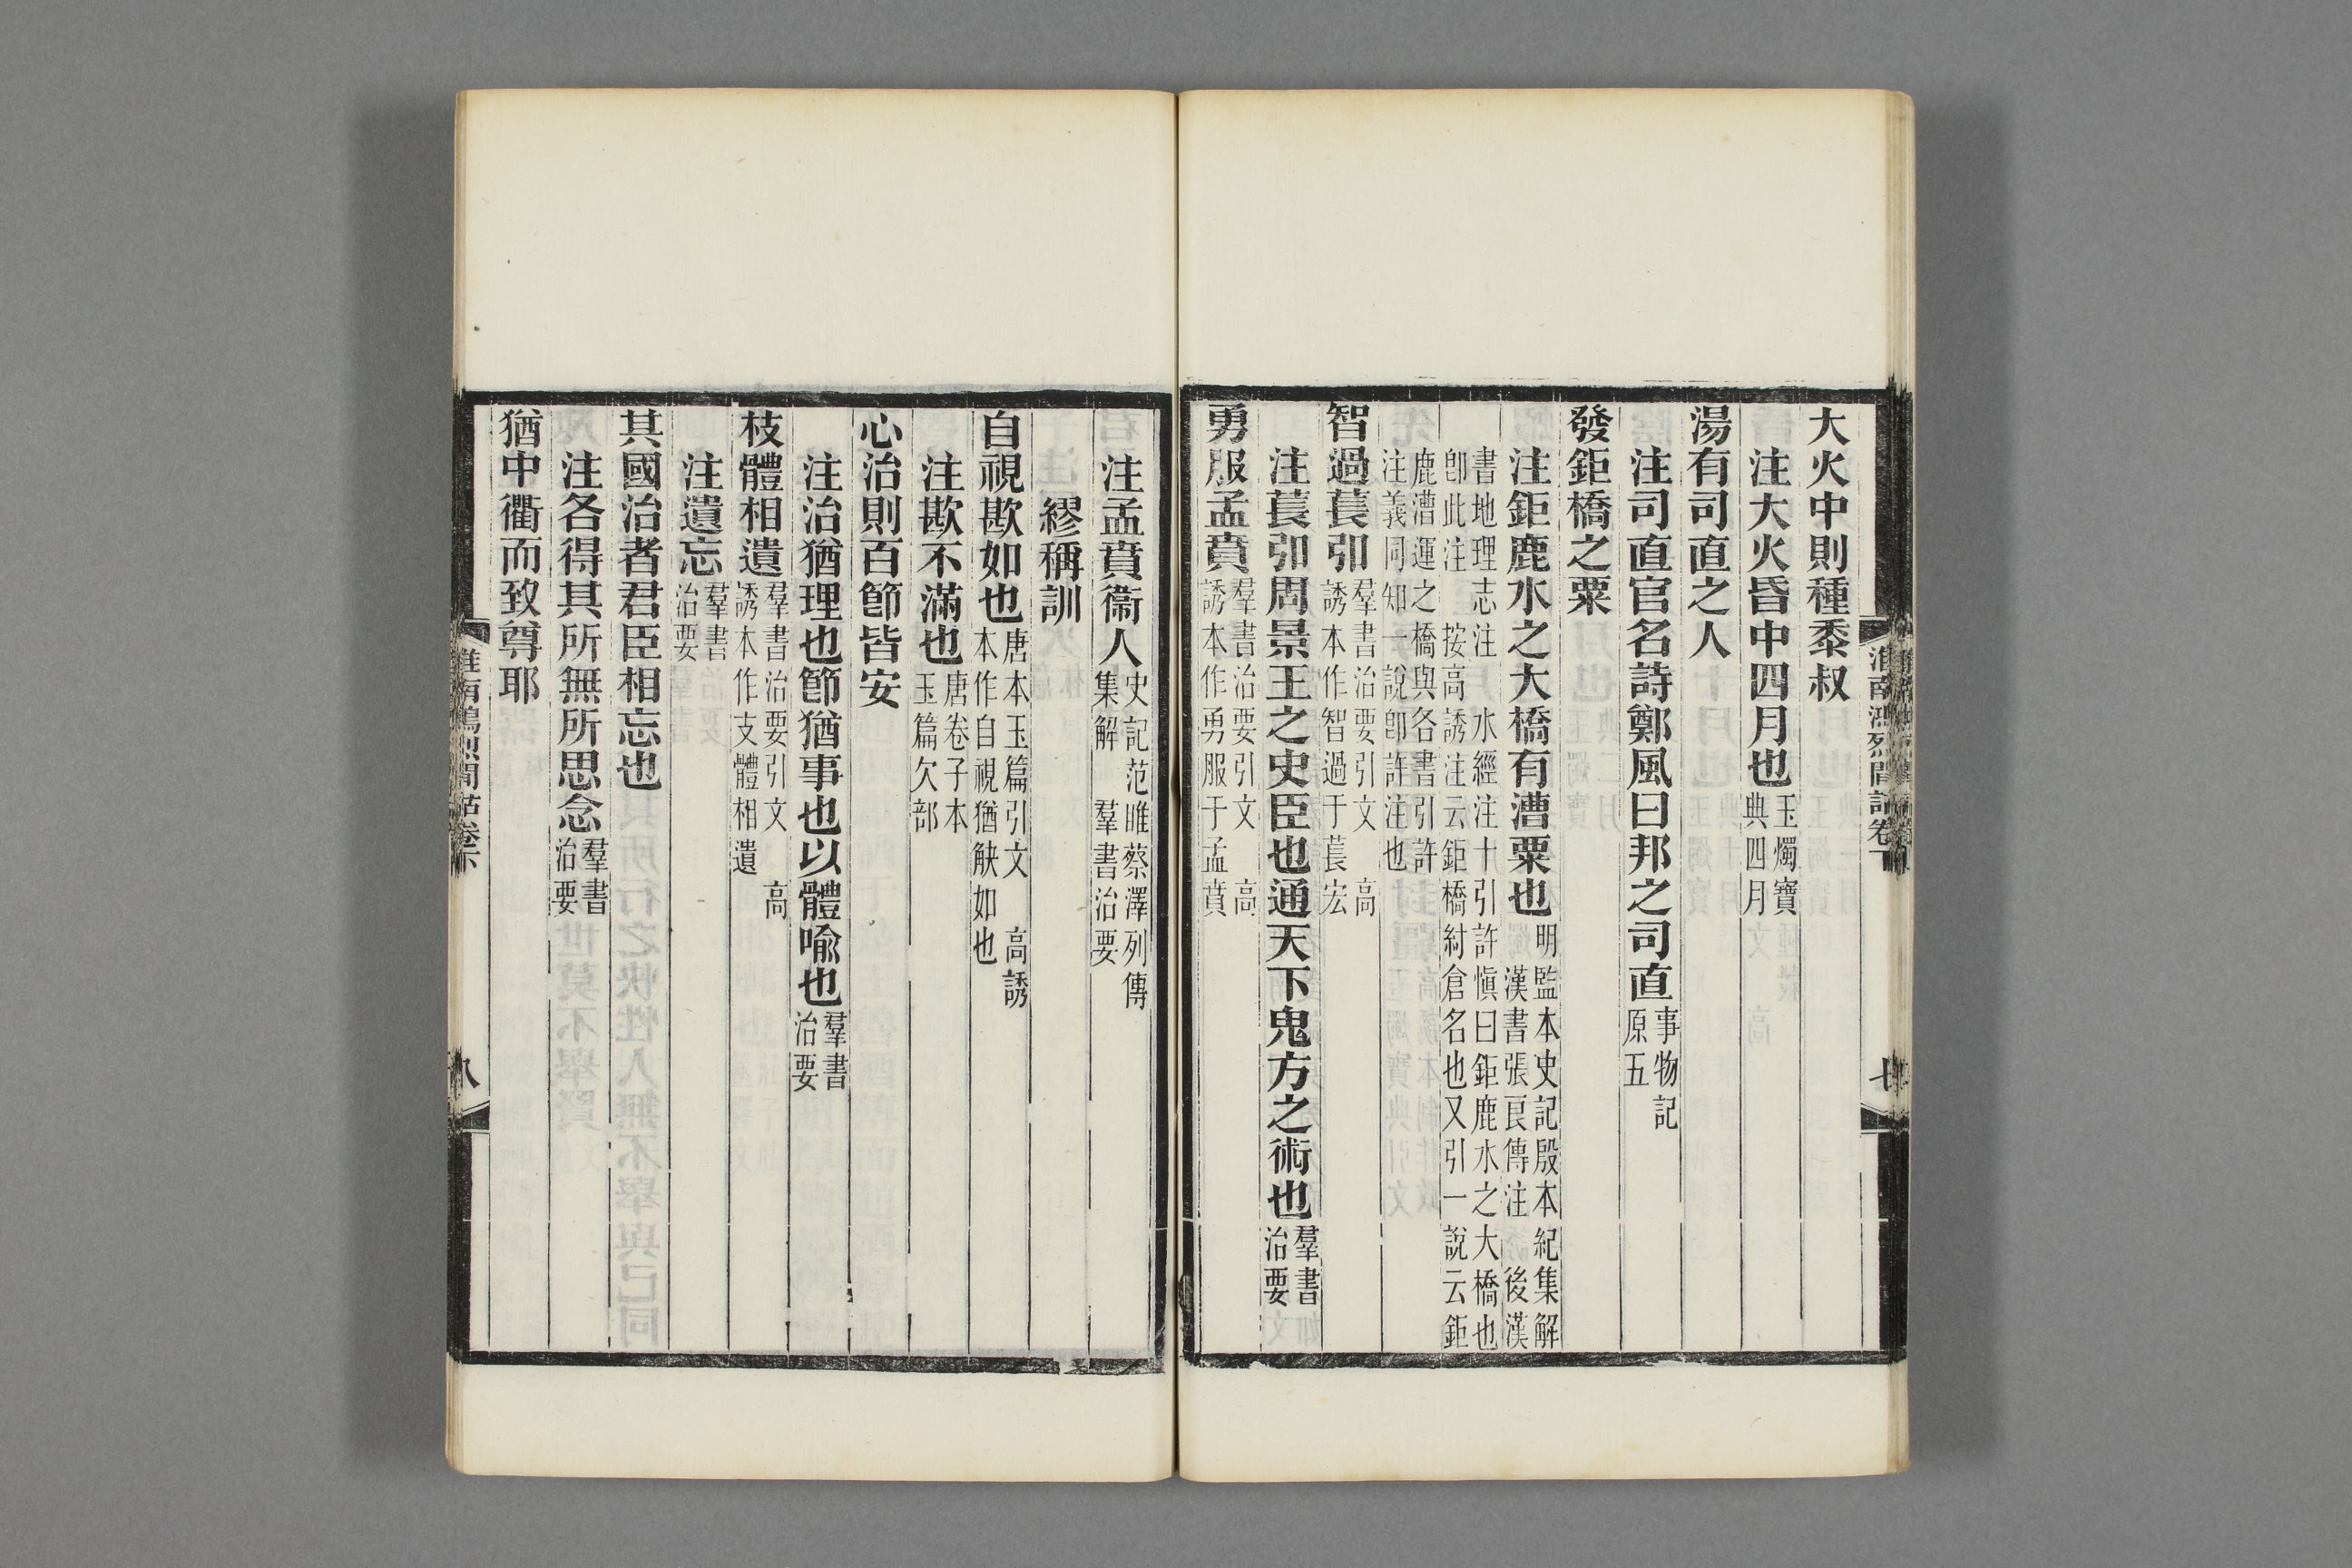 大火中則種黍叔
注大火昏中四月也玉燭寶典四月
湯有司直之人
注司直官名詩鄭風曰邦之司直事物記原五
發鉅橋之粟
注鉅鹿水之大橋有漕粟也明監本史記殷本紀集解 漢書張良傳注 後漢
書地理志注 水經注十引許愼曰鉅鹿水之大橋也卽此注 按高誘注云鉅橋紂倉名也又引一說云鉅
鹿漕運之橋與各書引許注義同知一說卽許注也
智過萇弘羣書治要引文 高誘本作智過于萇宏
注萇弘周景王之史臣也通天下鬼方之術也羣書治要
勇服孟賁羣書治要引文 高誘本作勇服于孟賁
淮南鴻烈閒詁卷下
七
注孟賁衞人史記范睢蔡澤列傳集解 羣書治要
繆稱訓
自視歁如也唐本玉篇引文 高誘本作自視猶觖如也
注歁不滿也唐卷子本玉篇欠部
心治則百節皆安
注治猶理也節猶事也以體喩也羣書治要
枝體相遺羣書治要引文 高誘本作支體相遺
注遺忘羣書治要
其國治者君臣相忘也
注各得其所無所思念羣書治要
猶中衢而致尊耶
淮南鴻烈閒詁卷下
八